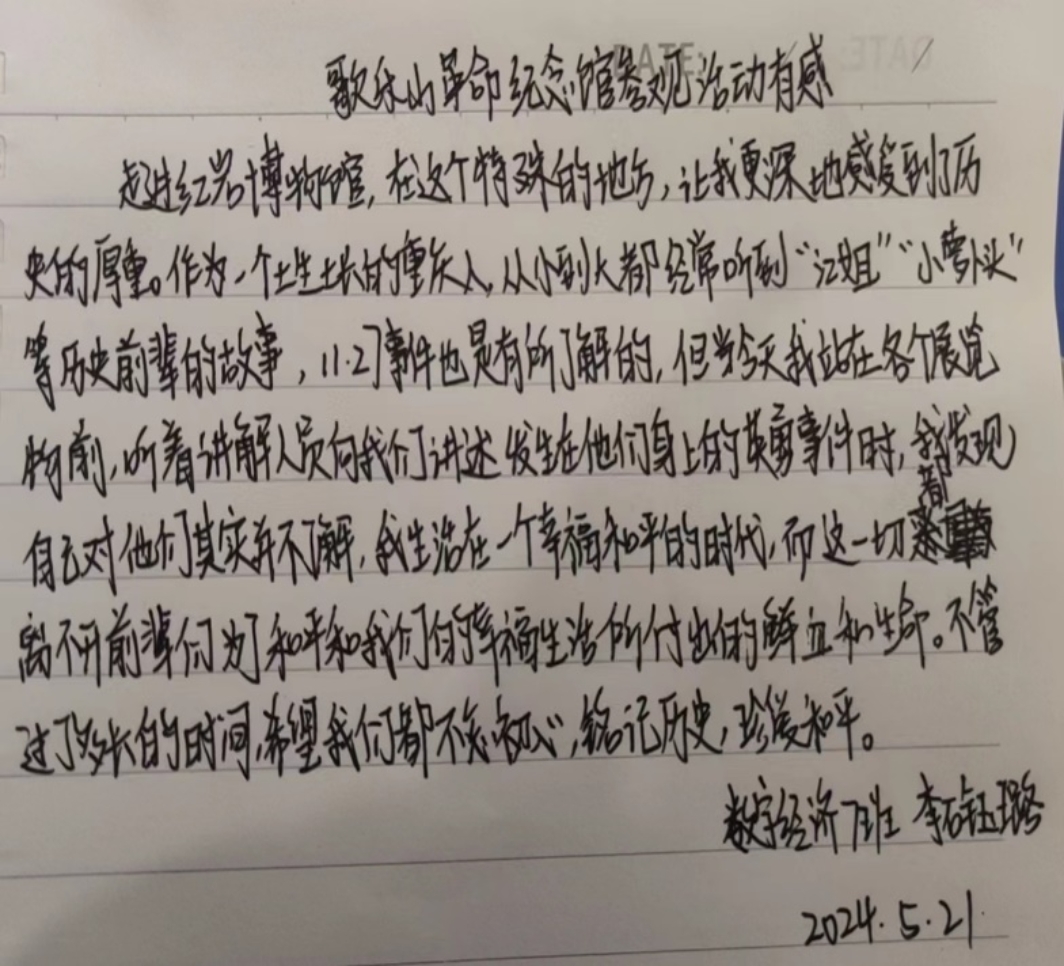 歌乐山革命纪念馆参观活动有感
走进红岩博物馆，在这个特殊的地方，让我更深地感受到了历
史的厚重。作为一个土生土长的重庆人，从小到大都经常听到“江姐”“小萝卜头”
等历史前辈的故事，11·27事件也是有所了解的，但当今天我站在各个展览
物前，听着讲解人员向我们讲述发生在他们身上的英勇事件时，我发现
自己对他们其实并不了解，我生活在一个幸福和平的时代，而这一切都
离不开前辈们为了和平和我们的幸福生活所付出的鲜血和生命。不管
过了多长的时间，希望我们都不忘初心，铭记历史，珍爱和平。
数字经济 班 李石钰璐
2024.5.21.